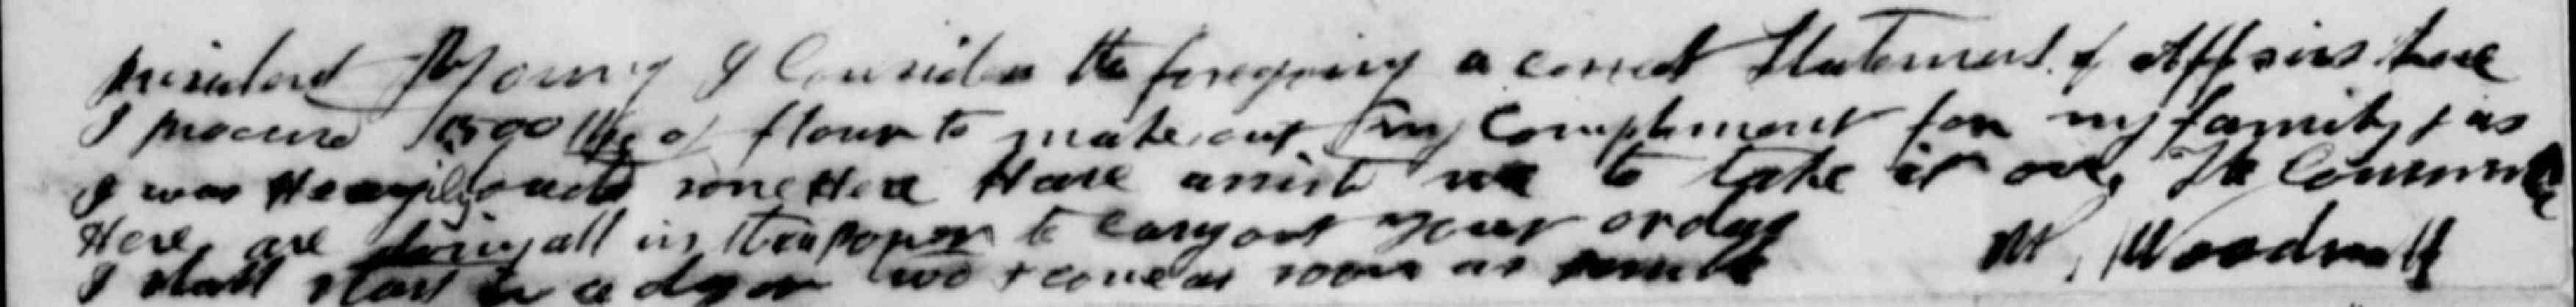 President Young I Consider the foregoing a correct Statement of Affairs here
I procure 1500 lbs of flour to make out my Compliment for my family & as
I was Heavily loaded some Here Have assisted me to take it on, The Commune
Here are doing all in their power to carry out your orders
I shall start in a day or two & come as soon as possible W. Woodruff